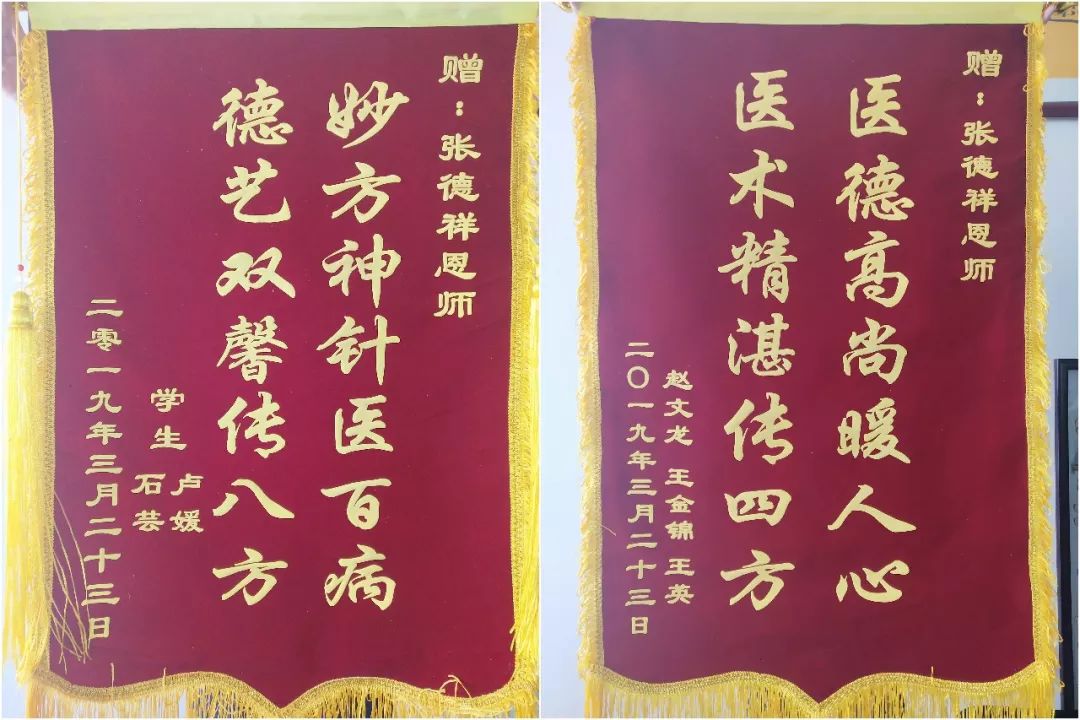 赠：张德祥恩师
妙方神针医百病
德艺双馨传八方
学生
卢媛
石芸
二零一九年三月二十三日
赠：张德祥恩师
医德高尚暖人心
医术精湛传四方
赵文龙 王金锦 王英
二〇一九年三月二十三日